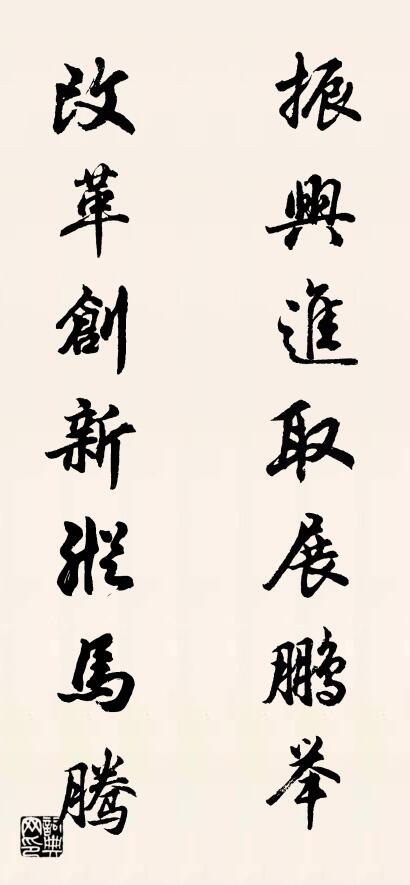 振興進取展鵬举
改革創新縱馬騰